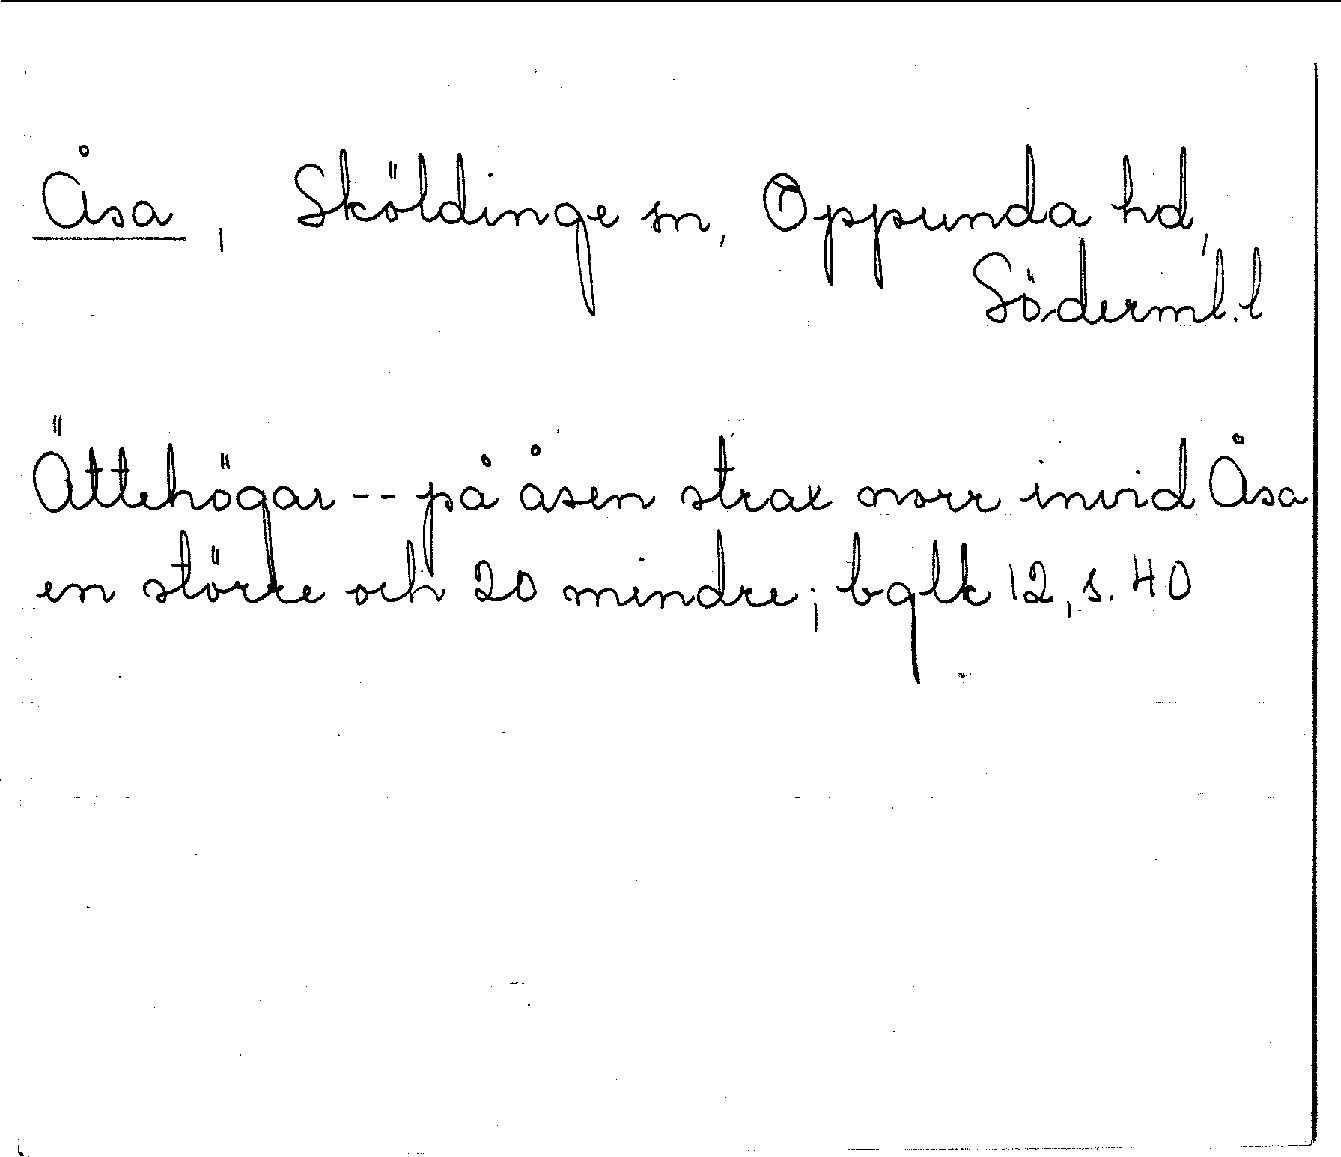 Åsa, Sköldinge sn, Oppunda hd,
Söderml. l
Ättehögar -- på åsen strax norr invid Åsa
en större och 20 mindre; bglk 12, s. 40